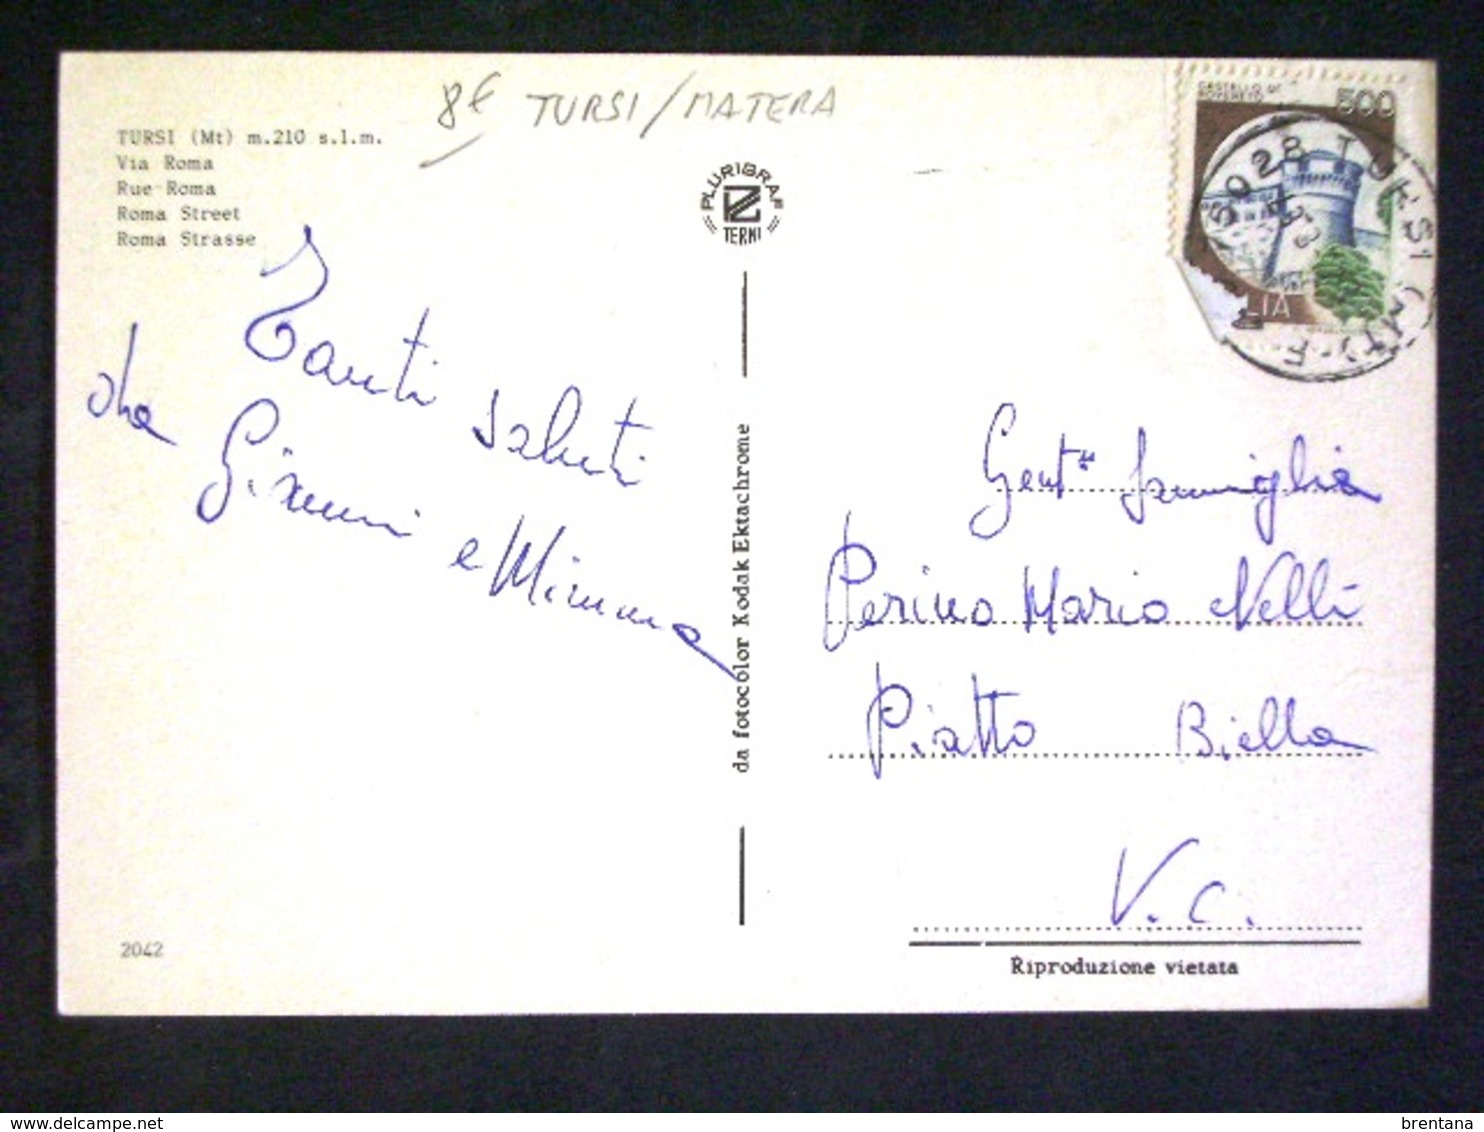 8€ TURSI/MATERA
TURSI (Mt) m.210 s.l.m.
Via Roma
Rue Roma
Roma Street
Roma Strasse
PLURIGRAF
TERNI
CASTELLO DI
ROVERETO
500
LIA
75028 TURSI (MT) F
Tanti saluti
da Gianni e Mimma
2042
da fotocolor Kodak Ektachrome
Gent.ma famiglia
Perino Mario Nelli
Piatto Biella
V.C.
Riproduzione vietata
brentana